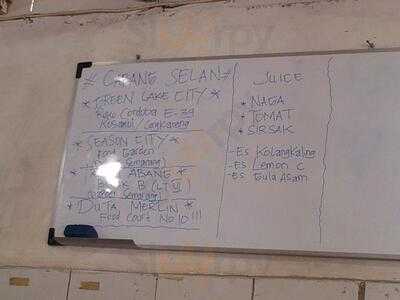 # CABANG SELAN #
* GREEN LAKE CITY *
Ruko Cordoba E-39
Kosambi / Cengkareng
* SEASON CITY *
Food Garden
Semarang)
ABANG *
B (LT VI)
Semarang)
* DUTA MERLIN *
Food Court No 10 !!!
JUICE
* NAGA
* TOMAT
* SIRSAK
- Es Kolangkaling
- Es Lemon C
- Es Gula Asam